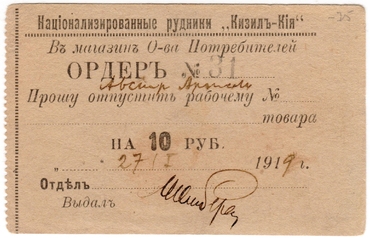 Націонализированные рудники "Кизилъ-Кія"
Въ магазинъ О-ва Потребителей
ОРДЕРЪ № 31
Прошу отпустить рабочему №
товара
НА 10 РУБ.
„ 27/I 1919 г.
Отдѣлъ
Выдалъ
-35